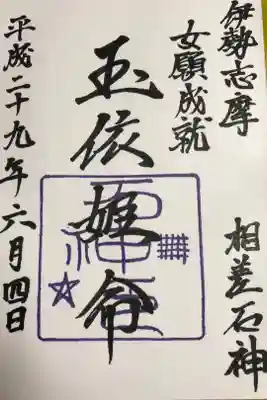 伊勢志摩 相差石神
女願成就
玉依姫命
平成二十九年六月四日